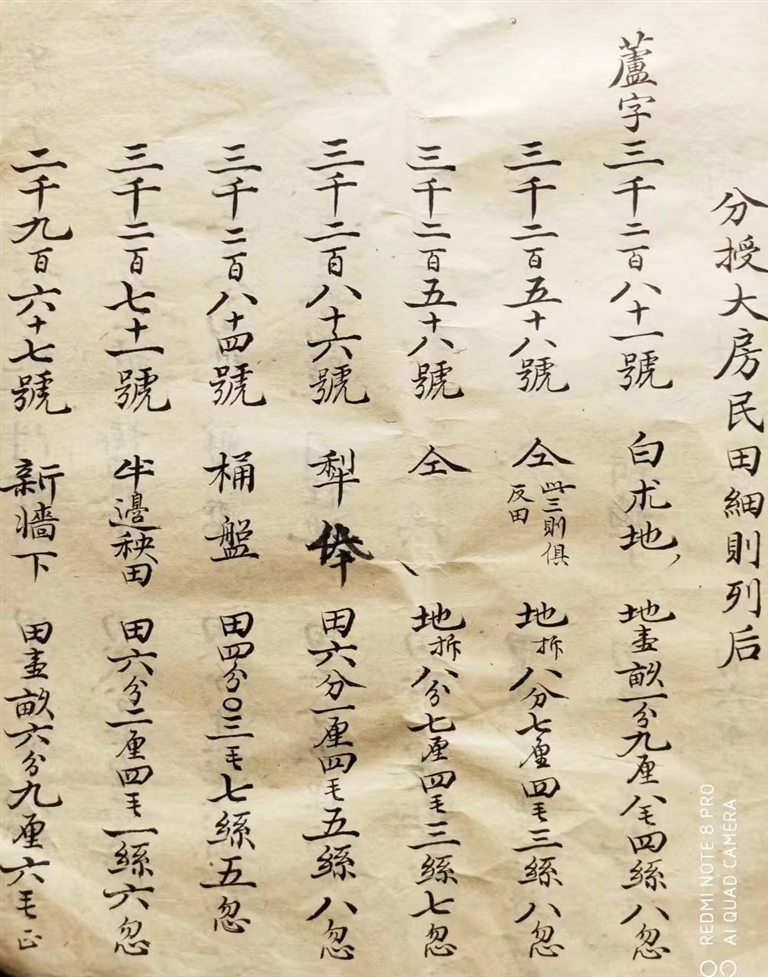 分授大房民田細則列后
蘆字三千二百八十一號 白朮地 地壹畝一分九厘八毛四絲八忽
三千二百五十八號 仝 此三則俱反田 地拆八分七厘四毛三絲八忽
三千二百五十八號 仝 地拆八分七厘四毛三絲七忽
三千二百八十六號 犁 田六分一厘四毛五絲八忽
三千二百八十四號 桶盤 田四分〇三毛七絲五忽
三千二百七十一號 牛邊秧田 田六分二厘四毛一絲六忽
二千九百六十七號 新墻下 田壹畝六分九厘六毛正
REDMI NOTE 8 PRO
AI QUAD CAMERA